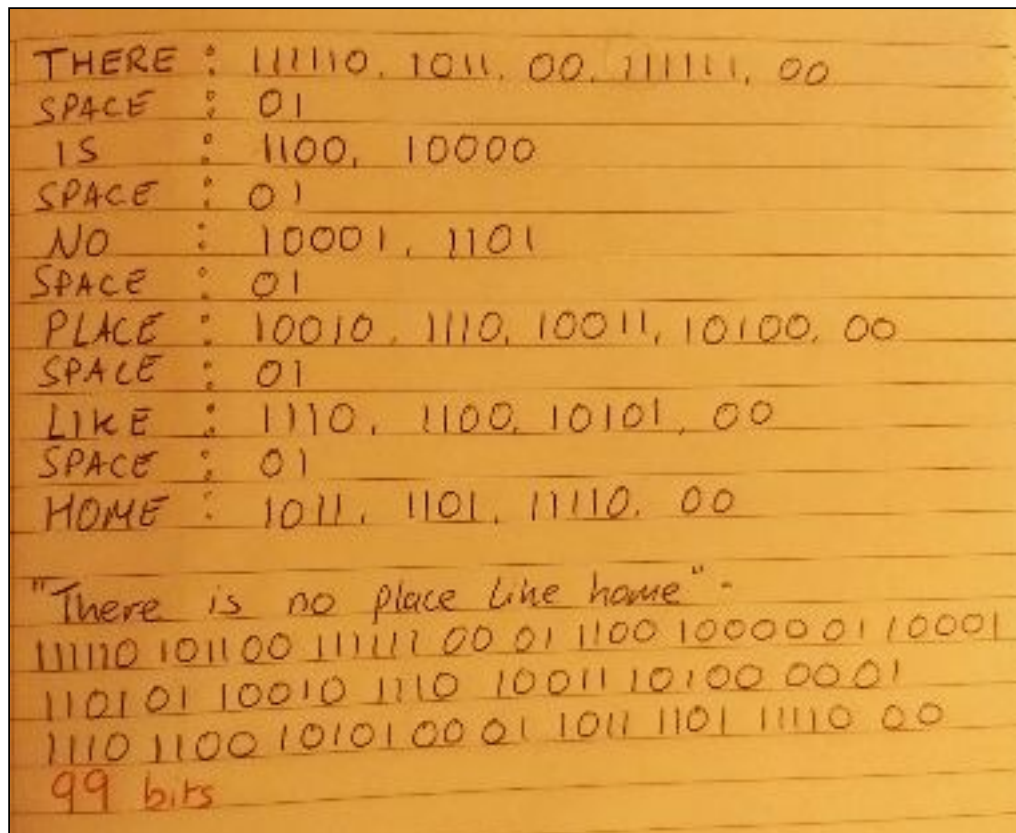 THERE : 111110, 1011, 00, 111111, 00
SPACE : 01
IS : 1100, 10000
SPACE : 01
NO : 10001, 1101
SPACE : 01
PLACE : 10010, 1110, 10011, 10100, 00
SPACE : 01
LIKE : 1110, 1100, 10101, 00
SPACE : 01
HOME : 1011, 1101, 11110, 00
"There is no place like home" -
111110 101100 111111 00 01 1100 10000 01 10001
1101 01 10010 1110 10011 10100 00 01
1110 1100 10101 00 01 1011 1101 11110 00
99 bits